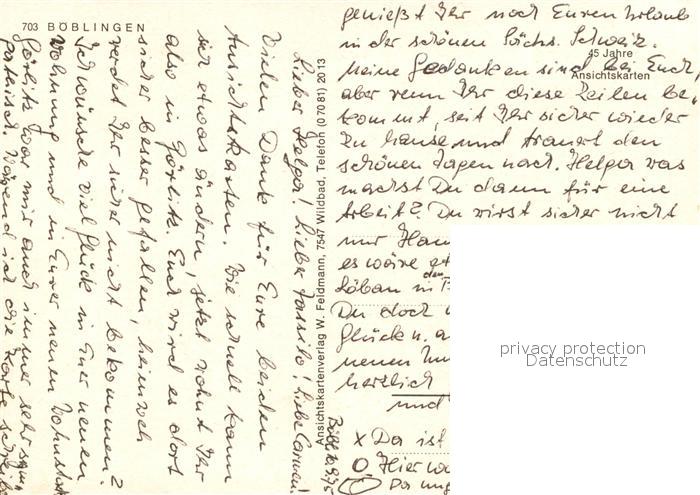 703 BÖBLINGEN
Ansichtskartenverlag W. Feldmann, 7547 Wildbad, Telefon (07081) 2013
45 Jahre
Ansichtskarten
Lieber Helga! Lieber Tassilo! Liebe Carmen!
Vielen Dank für Eure beiden
Ansichtskarten. Wie schnell kann
sich etwas ändern, jetzt wohnt Ihr
also in Görlitz. Euch wird es dort
sicher besser gefallen, Heimweh
werdet Ihr sicher nicht bekommen?
Ich wünsche viel Glück in Eurer neuen
Wohnung und in Eurer neuen
Görlitz war mir auch immer sehr sym-
pathisch. Während ich die Karte
genießt Ihr noch Euren Urlaub
in der schönen Sächs. Schweiz.
Meine Gedanken sind bei Euch,
aber wenn Ihr diese Zeilen be-
kommt, seit Ihr sicher wieder
zu hause und trauert den
schönen Tagen nach. Helga was
machst Du dann für eine
Arbeit? Du wirst sicher nicht
nur
es wäre
Löbau in
Du doch
Glück u.
neuen
herzlich
und
x Da ist
Hier
privacy protection
Datenschutz